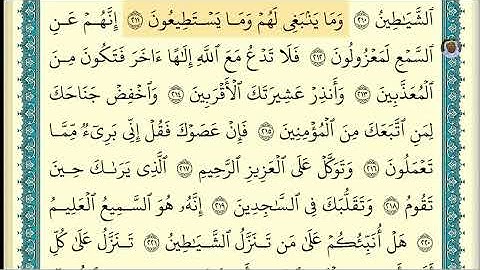 ٱلشَّيَـٰطِينُ ٢١٠ وَمَا يَنۢبَغِى لَهُمْ وَمَا يَسْتَطِيعُونَ ٢١١ إِنَّهُمْ عَنِ
ٱلسَّمْعِ لَمَعْزُولُونَ ٢١٢ فَلَا تَدْعُ مَعَ ٱللَّهِ إِلَـٰهًا ءَاخَرَ فَتَكُونَ مِنَ
ٱلْمُعَذَّبِينَ ٢١٣ وَأَنذِرْ عَشِيرَتَكَ ٱلْأَقْرَبِينَ ٢١٤ وَٱخْفِضْ جَنَاحَكَ
لِمَنِ ٱتَّبَعَكَ مِنَ ٱلْمُؤْمِنِينَ ٢١٥ فَإِنْ عَصَوْكَ فَقُلْ إِنِّى بَرِىٓءٌ مِّمَّا
تَعْمَلُونَ ٢١٦ وَتَوَكَّلْ عَلَى ٱلْعَزِيزِ ٱلرَّحِيمِ ٢١٧ ٱلَّذِى يَرَىٰكَ حِينَ
تَقُومُ ٢١٨ وَتَقَلُّبَكَ فِى ٱلسَّـٰجِدِينَ ٢١٩ إِنَّهُۥ هُوَ ٱلسَّمِيعُ ٱلْعَلِيمُ
٢٢٠ هَلْ أُنَبِّئُكُمْ عَلَىٰ مَن تَنَزَّلُ ٱلشَّيَـٰطِينُ ٢٢١ تَنَزَّلُ عَلَىٰ كُلِّ